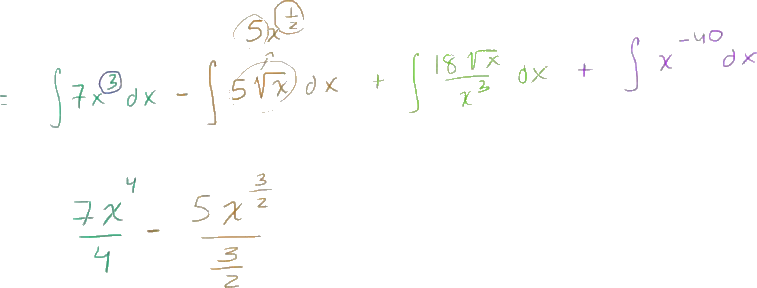 5x^{1/2}
= ∫ 7x^3 dx - ∫ 5√x dx + ∫ 18√x / x^3 dx + ∫ x^{-40} dx
7x^4 / 4 - 5x^{3/2} / (3/2)